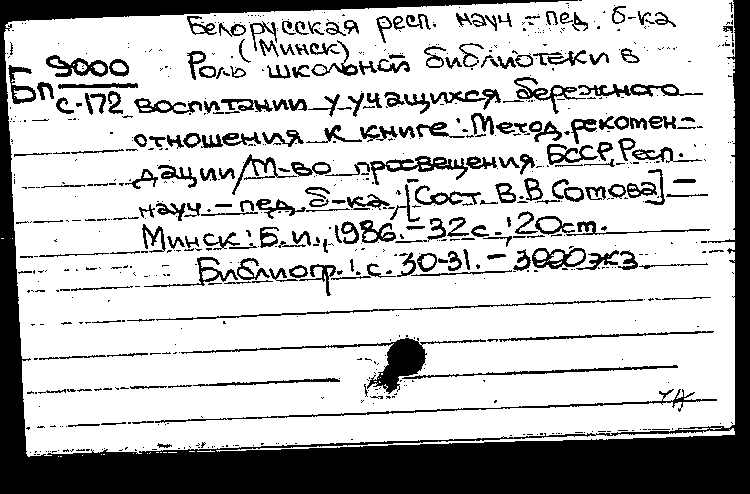 Белорусская респ. науч.-пед. б-ка
(Минск)
Бп 9000
с-172
Роль школьной библиотеки в
воспитании у учащихся бережного
отношения к книге: Метод. рекомен-
дации/М-во просвещения БССР, Респ.
науч.-пед. б-ка; [Сост. В.В. Сотова].-
Минск: Б.и., 1986.-32с.; 20см.
Библиогр.: с. 30-31. - 3000экз.